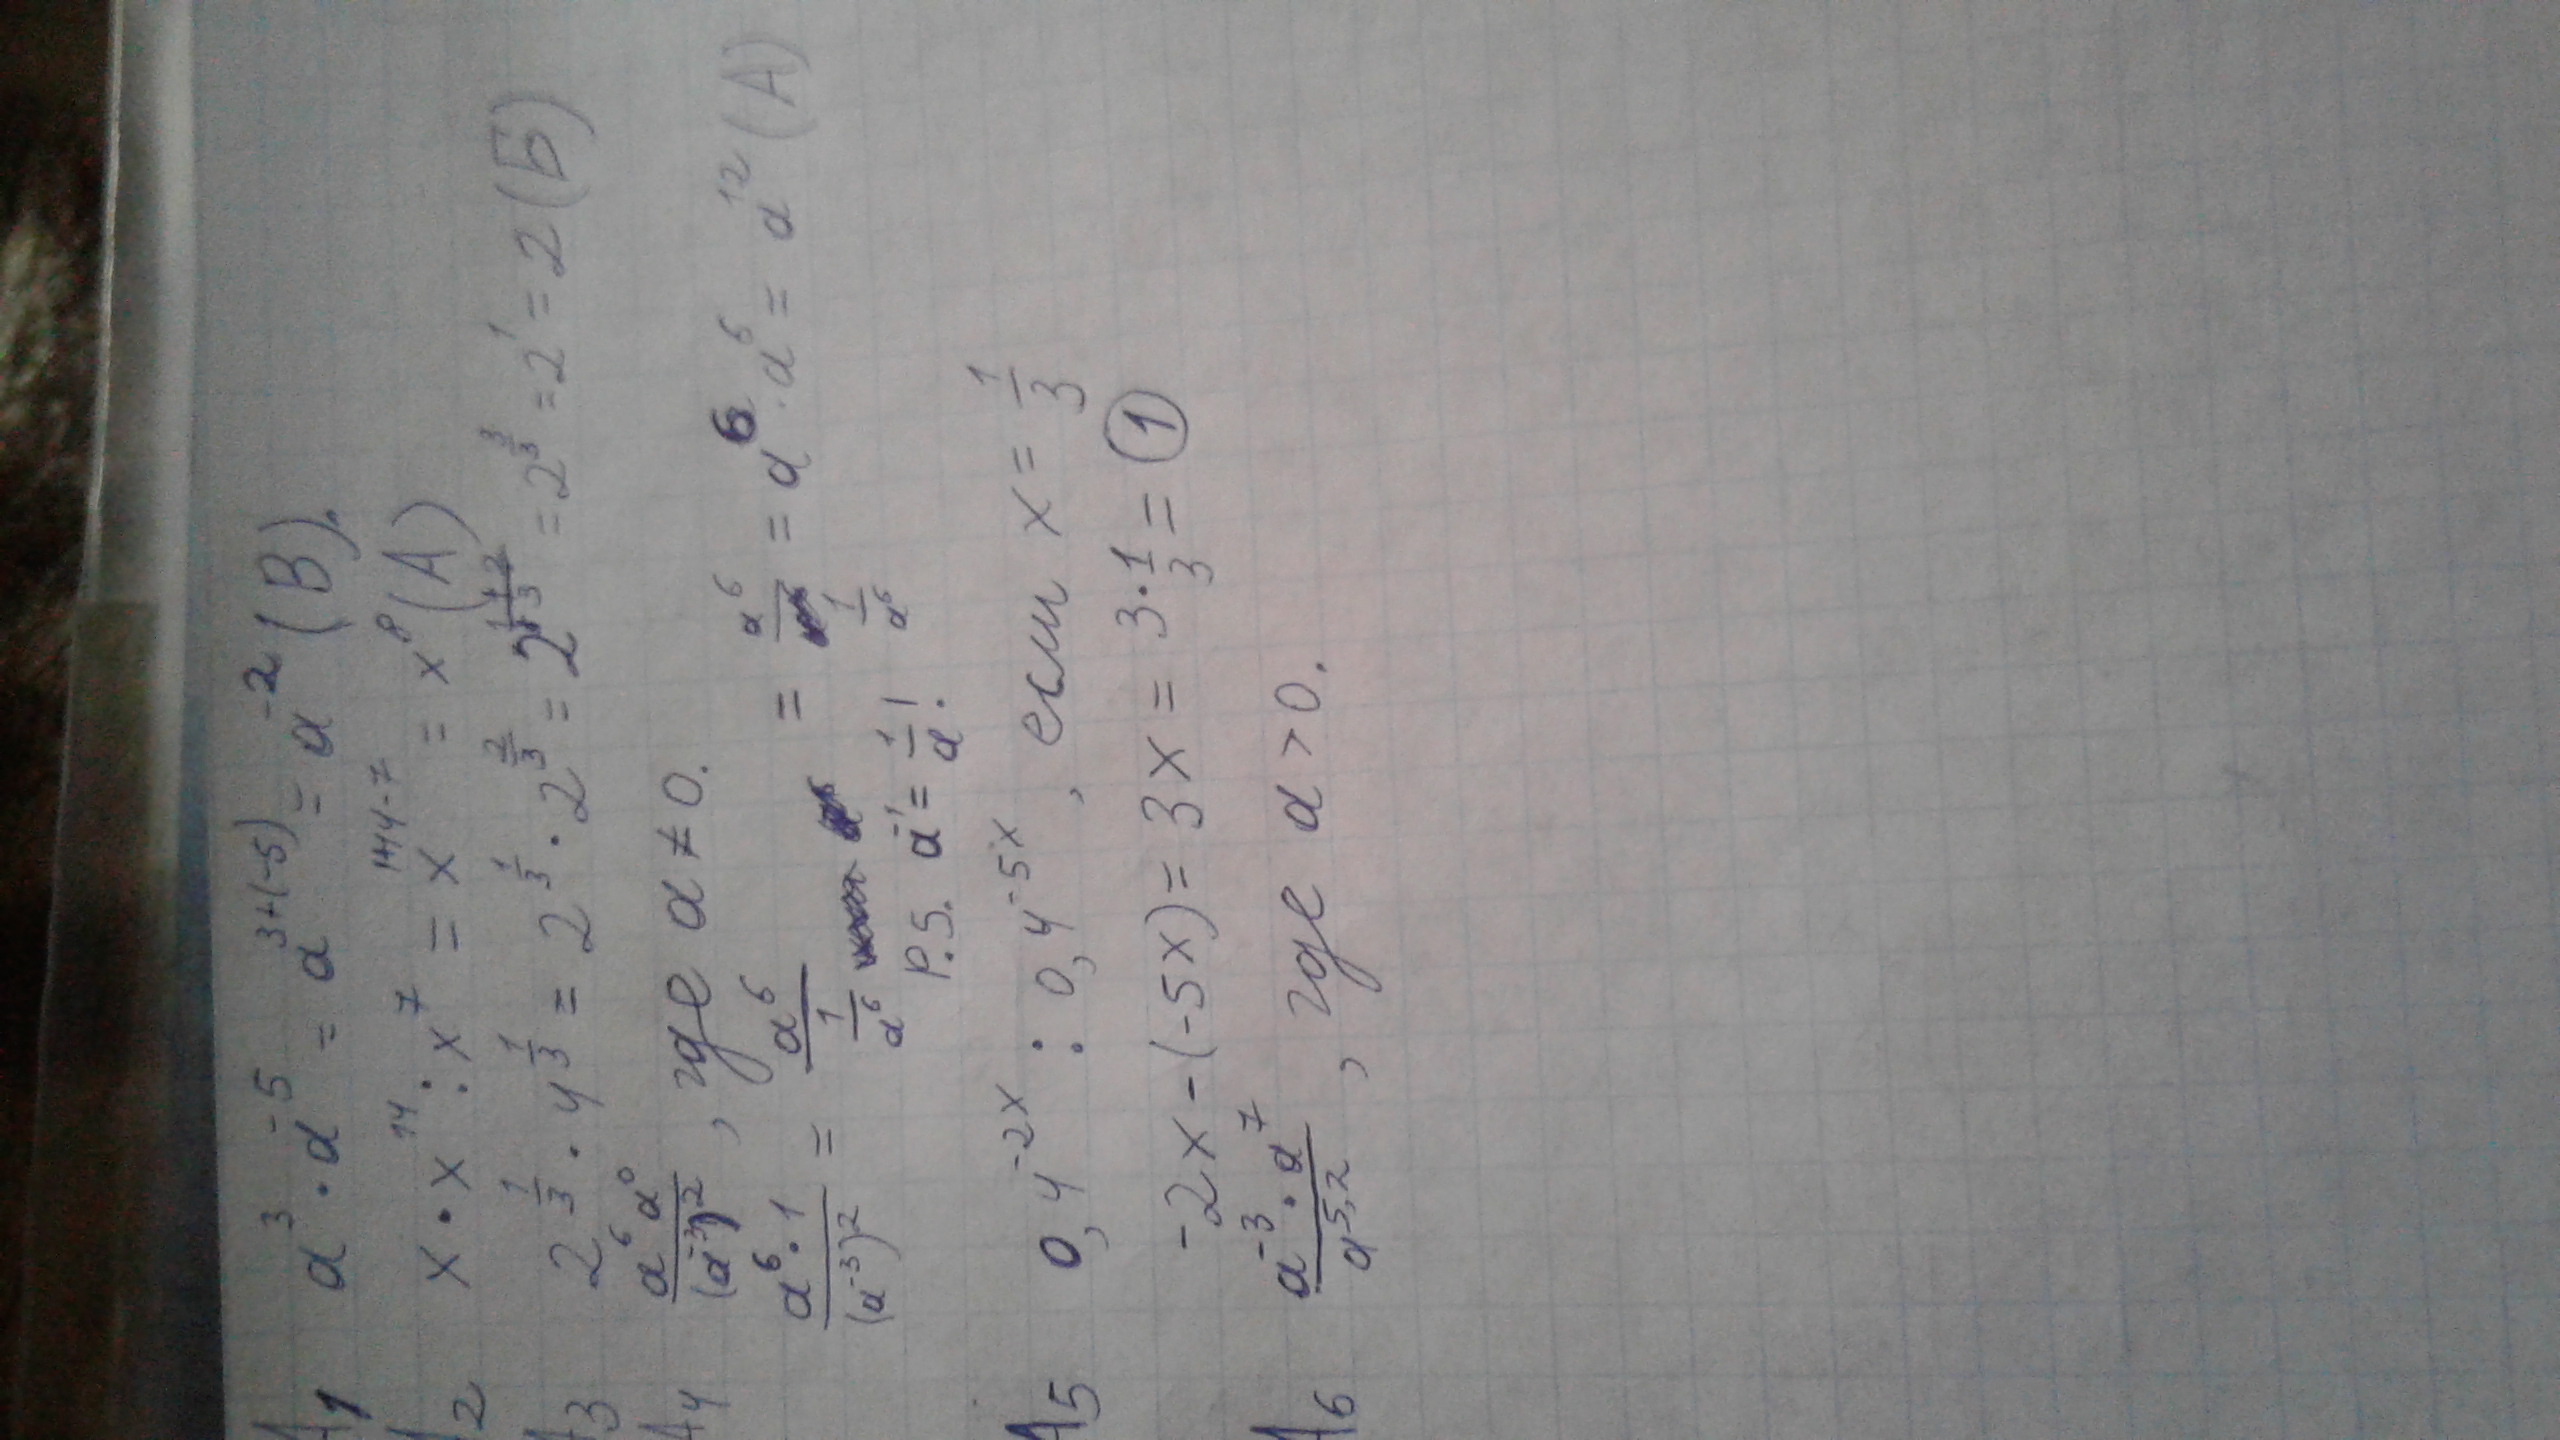 A1 a³ · a⁻⁵ = a³⁺⁽⁻⁵⁾ = a⁻² (В).
A2 x · x¹⁴ : x⁷ = x¹⁺¹⁴⁻⁷ = x⁸ (А)
A3 2^(1/3) · 4^(1/3) = 2^(1/3) · 2^(2/3) = 2^(1/3+2/3) = 2^(3/3) = 2¹ = 2 (Б)
A4 a⁶a⁰/(a⁻³)², где a ≠ 0.
a⁶·1/(a⁻³)² = a⁶/(1/a⁶) = a⁶/(1/a⁶) = a⁶ · a⁶ = a¹² (А)
P.S. a⁻¹ = 1/a!
A5 0,4⁻²ˣ : 0,4⁻⁵ˣ, если x = 1/3
-2x - (-5x) = 3x = 3 · 1/3 = 1
A6 a⁻³ · a⁷/a^(-5,2), где a > 0.